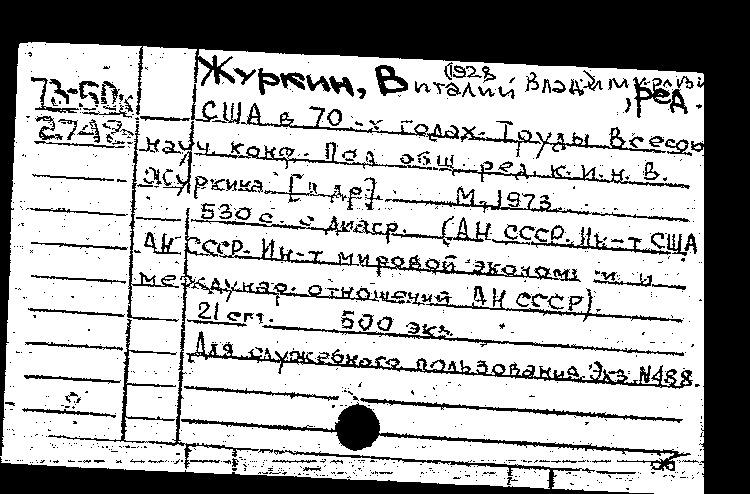 73-50к
2748
Журкин, Виталий Владимирови (1928
, ред.
США в 70-х годах. Труды Всесоюз
науч. конф. Под общ. ред. к.и.н. В.
Журкина [и др]. М, 1973
530 с. с диагр. (АН СССР. Ин-т США
АН СССР. Ин-т мировой эконом и и
междунар. отношений АН СССР).
21 см. 500 экз
Для служебного пользования. Экз. N488.